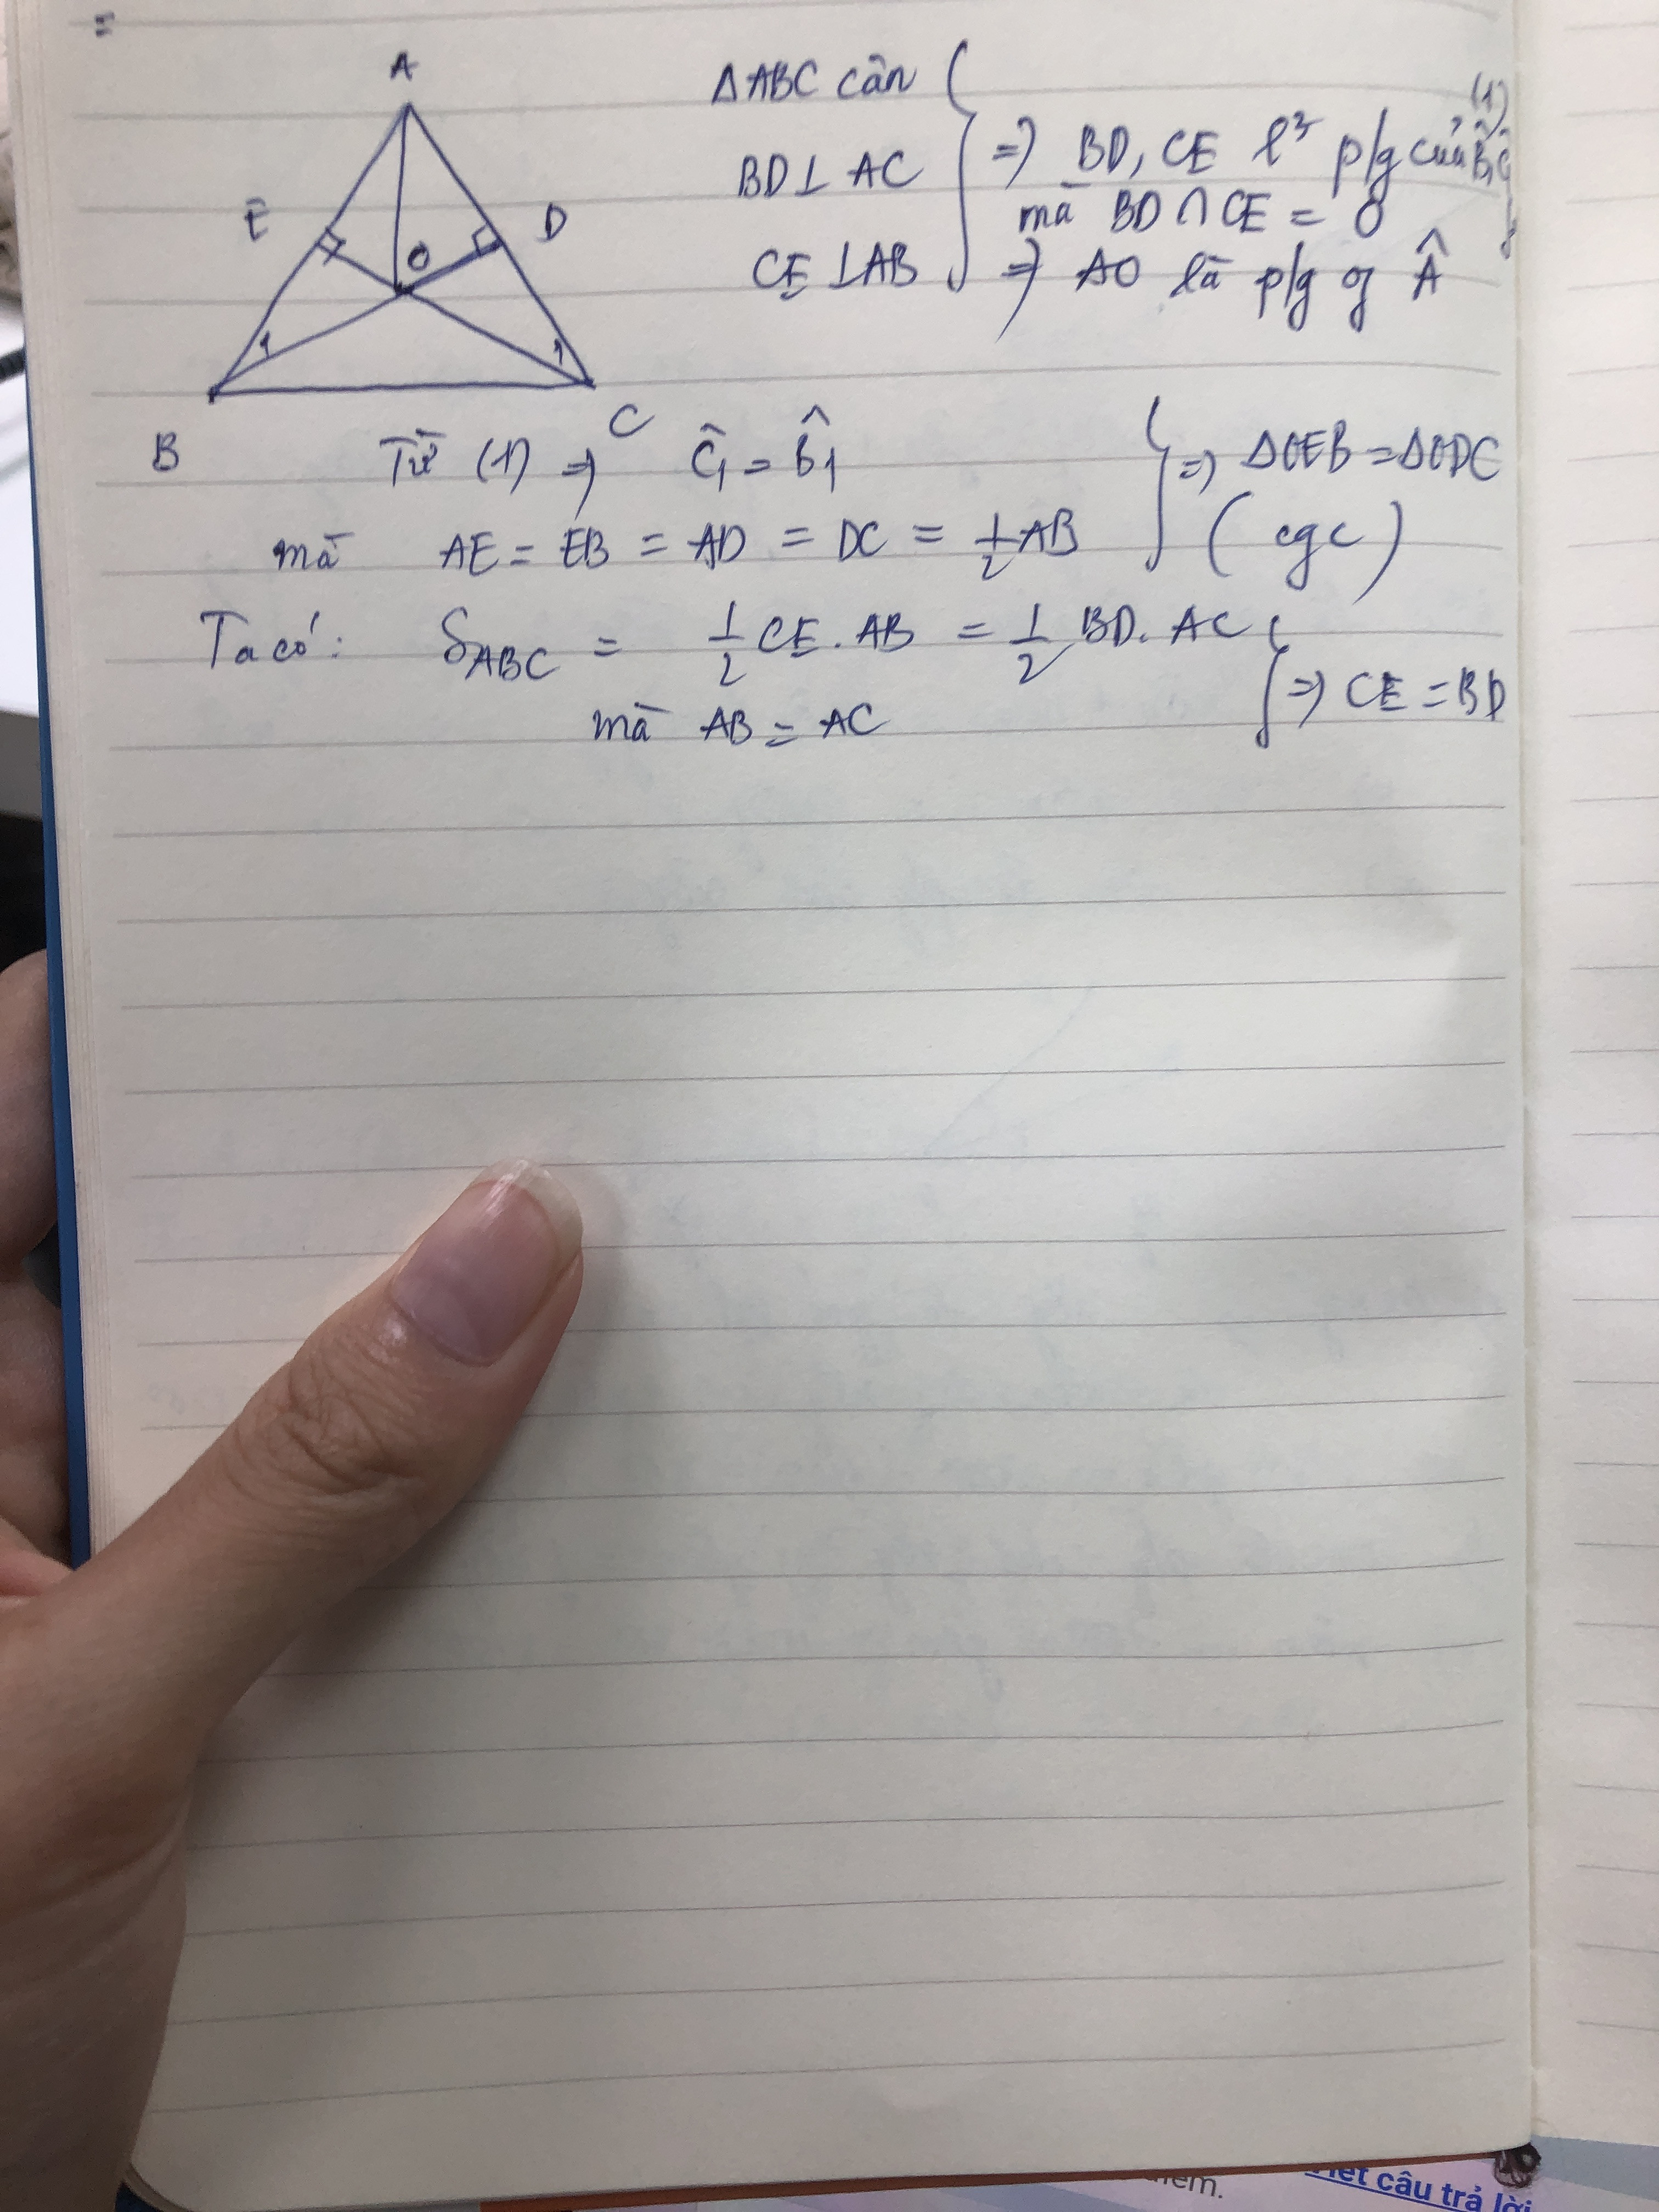 =
A
E
D
O
1
1
B
C
ΔABC cân
BD⊥ AC
CE ⊥AB
(1)
=> BD, CE là p/g của B̂, Ĉ
mà BD ∩ CE = O
=> AO là p/g of Â
Từ (1) => Ĉ₁ = B̂₁
mà AE = EB = AD = DC = 1/2 AB
=> ΔOEB = ΔODC
( cgc )
Ta có: S_ABC = 1/2 CE. AB = 1/2 BD. AC
mà AB = AC
=> CE = BD
câu trả lời